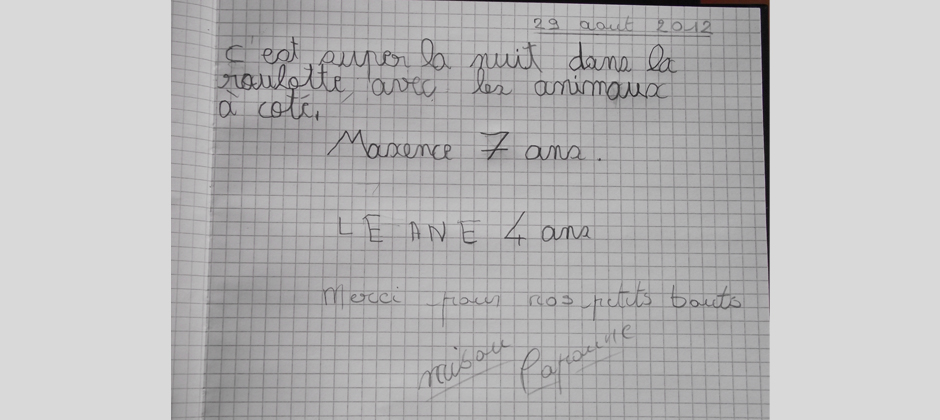 29 aout 2012
c'est super la nuit dans la
roulotte, avec les animaux
à coté.
Maxence 7 ans.
LEANE 4 ans
Merci pour nos petits bouts